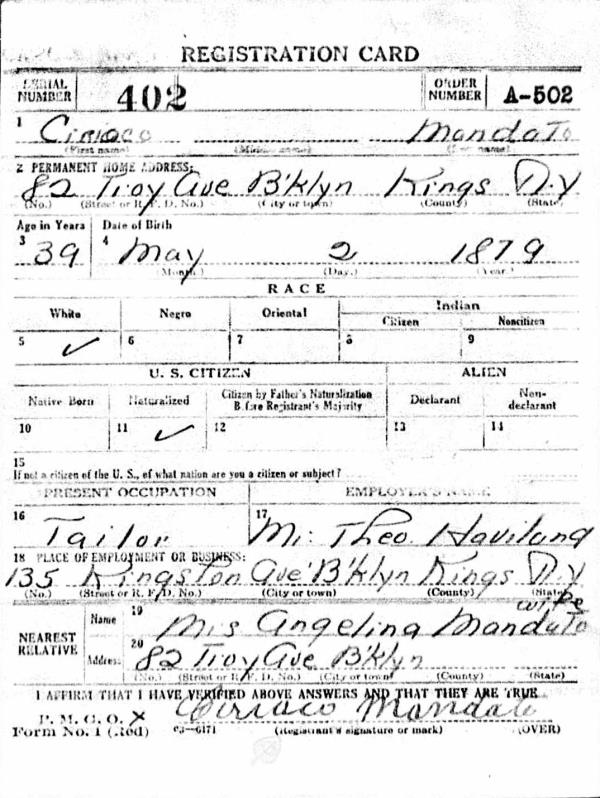 REGISTRATION CARD
SERIAL NUMBER 402 ORDER NUMBER A-502
1 Ciriaco Mandato
(First name) (Middle name) (Last name)
2 PERMANENT HOME ADDRESS:
82 Troy Ave B'klyn Kings N.Y
(No.) (Street or R. F. D. No.) (City or town) (County) (State)
Age in Years Date of Birth
3 39 4 May 2 1879
(Month.) (Day.) (Year.)
RACE
White Negro Oriental Indian
Citizen Noncitizen
5 ✓ 6 7 8 9
U. S. CITIZEN ALIEN
Native Born Naturalized Citizen by Father's Naturalization Before Registrant's Majority Declarant Non-declarant
10 11 ✓ 12 13 14
15
If not a citizen of the U. S., of what nation are you a citizen or subject?
PRESENT OCCUPATION EMPLOYER'S NAME
16 Tailor 17 Mr. Theo. Haviland
18 PLACE OF EMPLOYMENT OR BUSINESS:
135 Kingston Ave B'klyn Kings N.Y
(No.) (Street or R. F. D. No.) (City or town) (County) (State)
wife
NEAREST RELATIVE Name 19 Mrs Angelina Mandato
Address 20 82 Troy Ave B'klyn
(No.) (Street or R. F. D. No.) (City or town) (County) (State)
I AFFIRM THAT I HAVE VERIFIED ABOVE ANSWERS AND THAT THEY ARE TRUE
P. M. G. O. x Ciriaco Mandato
Form No. 1 (Red) 03—6171 (Registrant's signature or mark) (OVER)